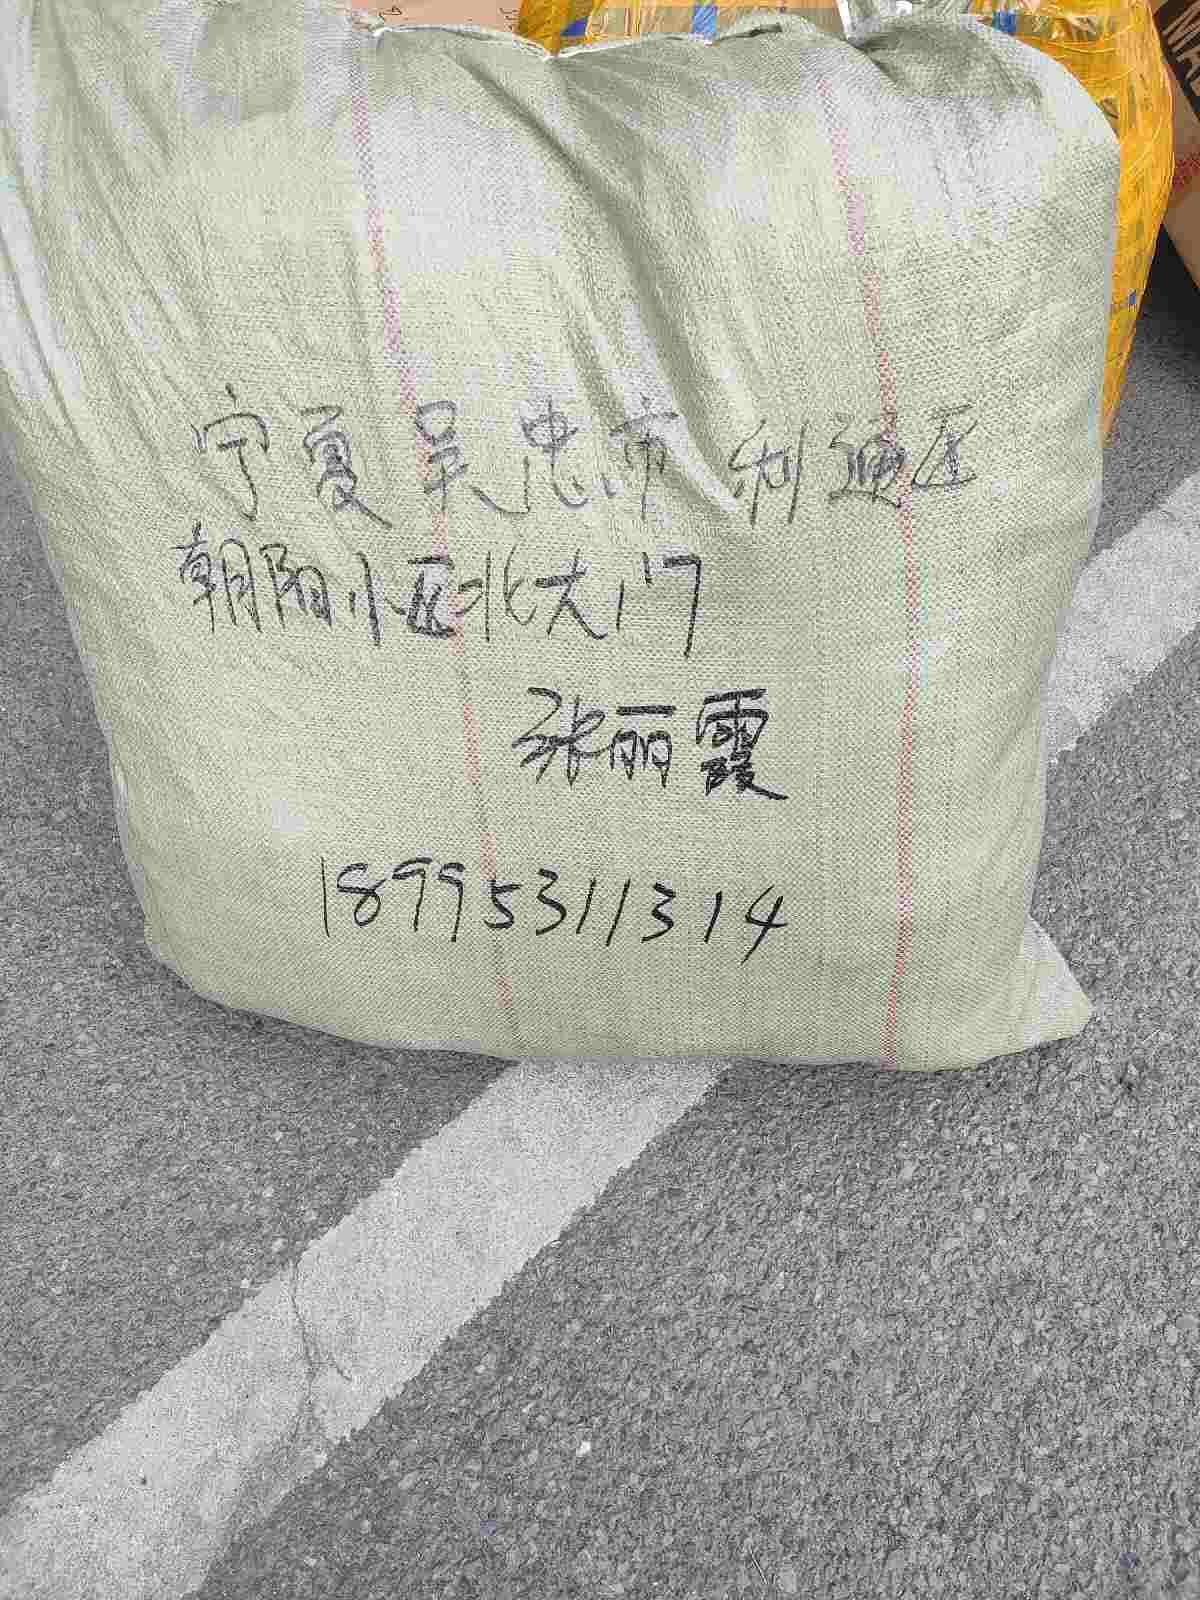 宁夏吴忠市利通区
朝阳小区北大门
张丽霞
18995311314